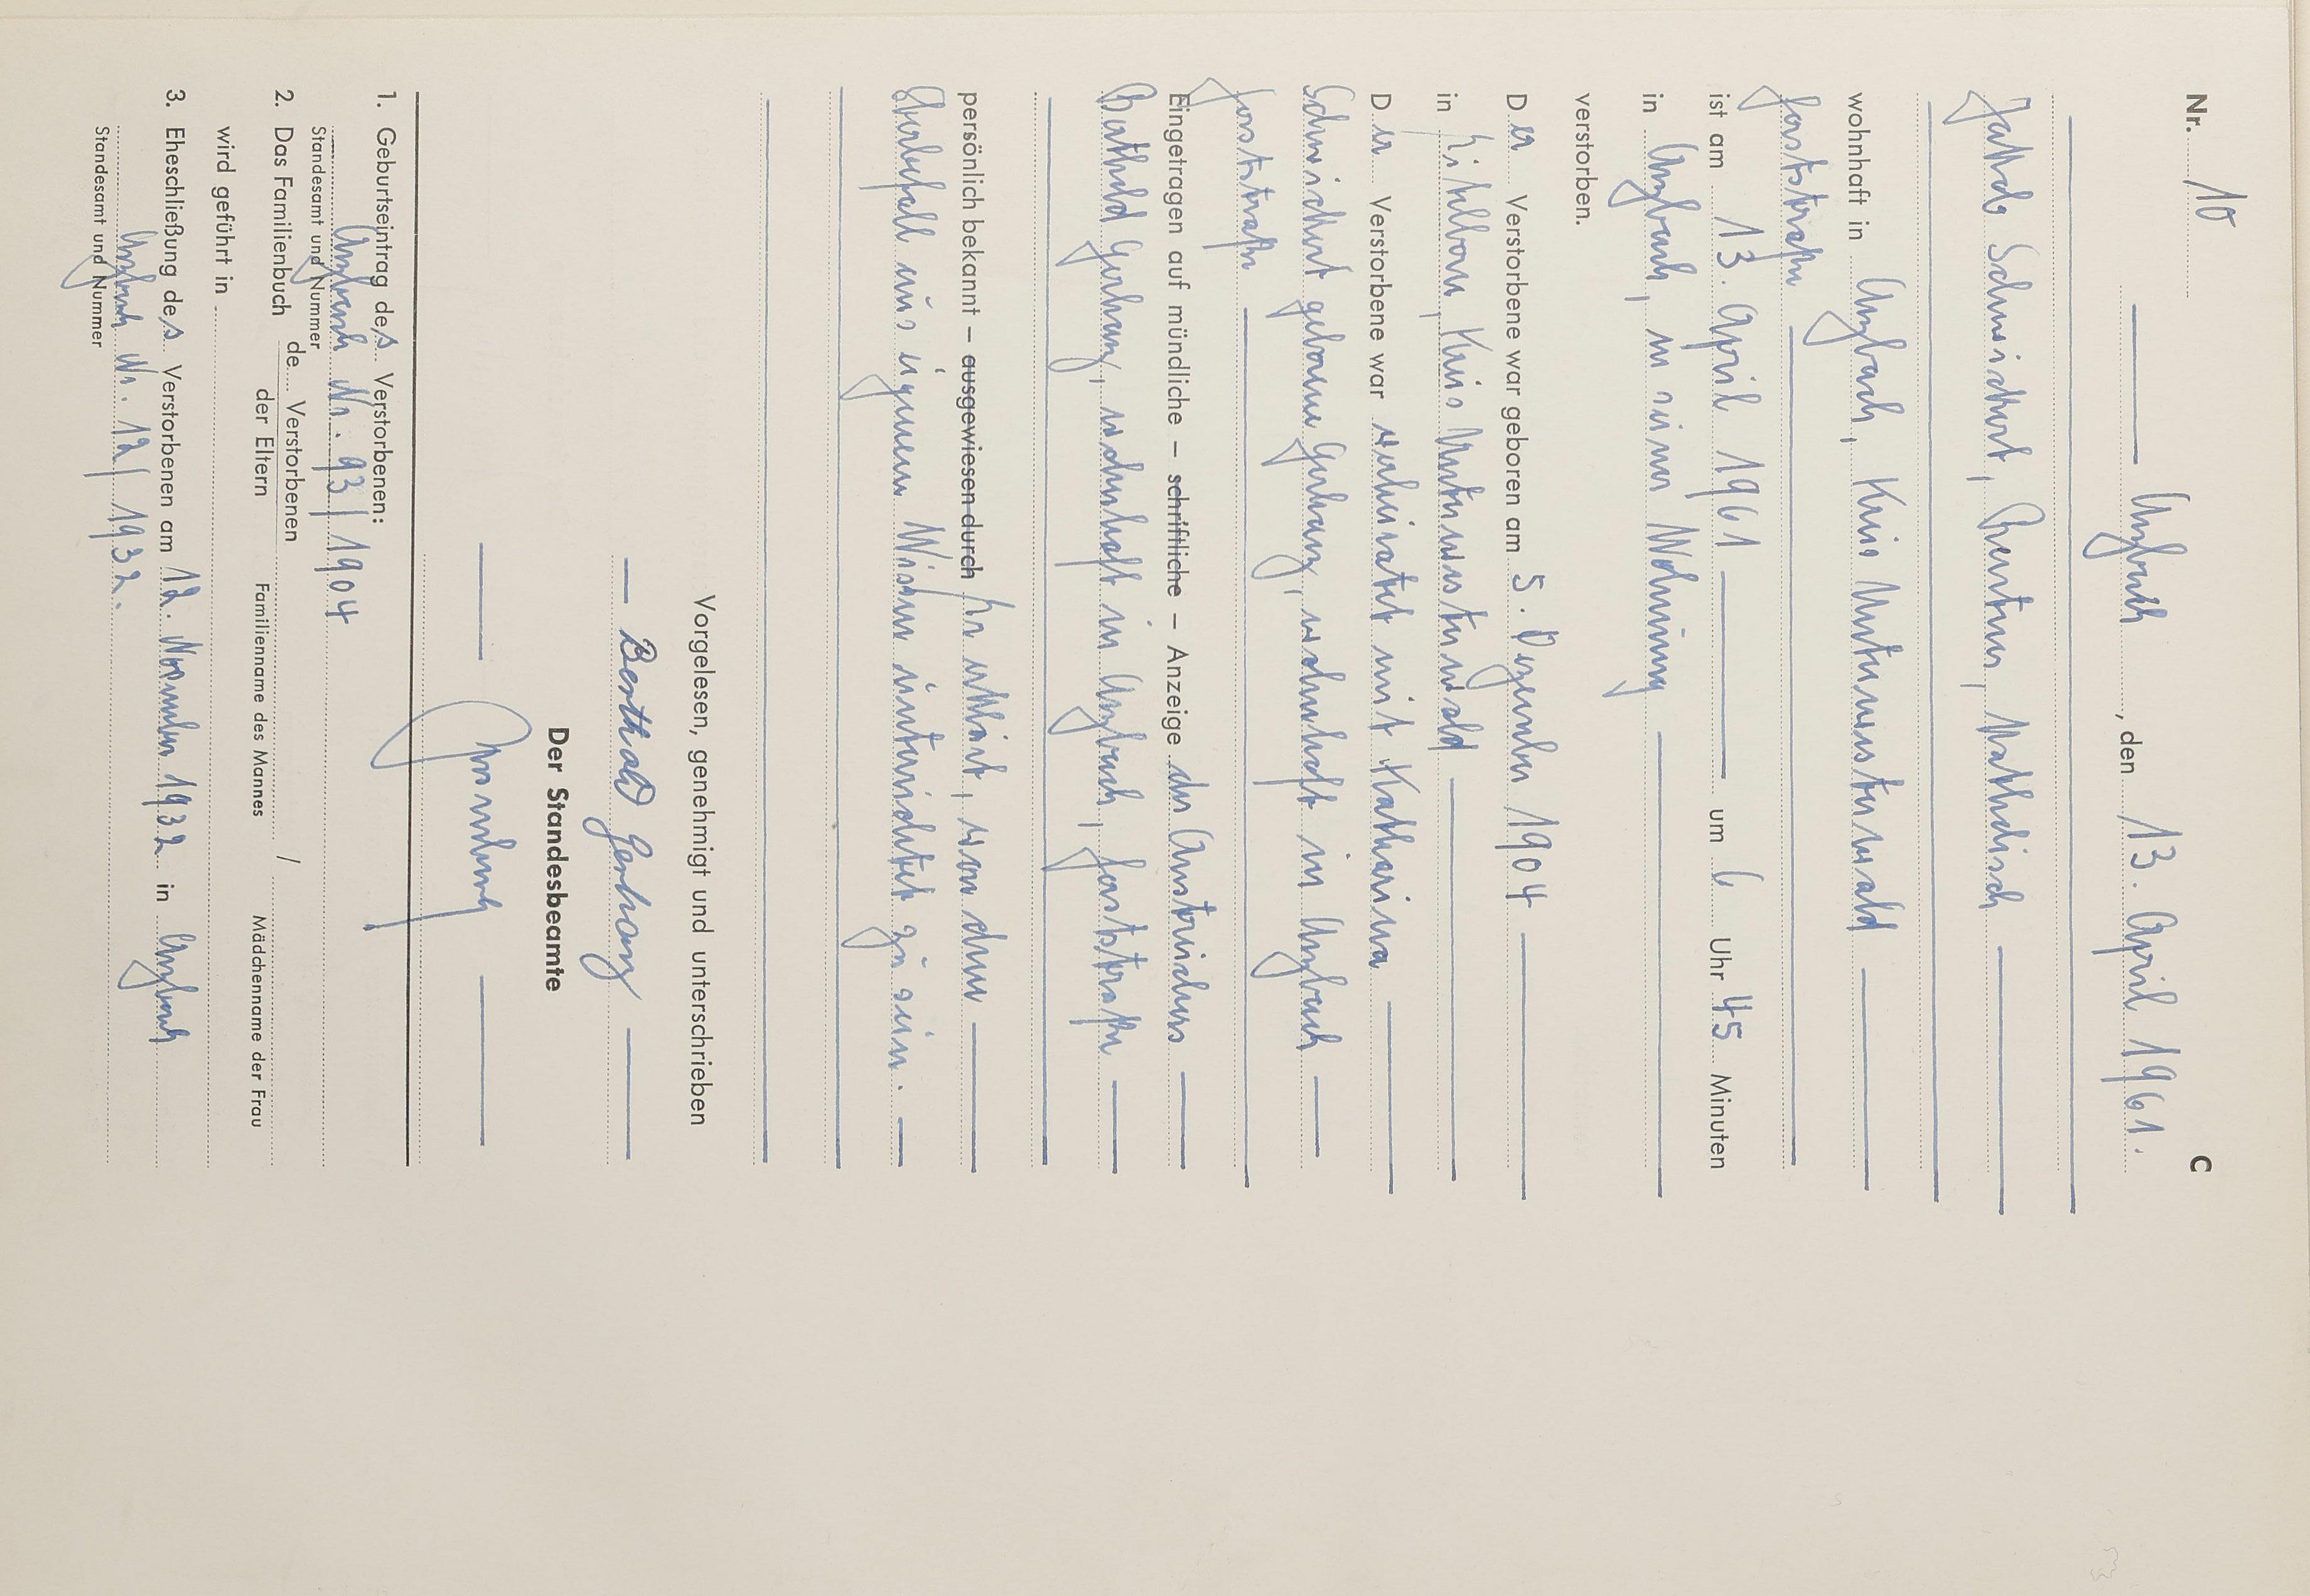 Nr. 10 C
Anzbach, den 13. April 1961.
Jakob Schwickert, Rentner, katholisch
wohnhaft in Anzbach, Kreis Unterwesterwald
Forststraße
ist am 13. April 1961 um 6 Uhr 45 Minuten
in Anzbach, in seiner Wohnung
verstorben.
Der Verstorbene war geboren am 5. Dezember 1904
in Kreis Unterwesterwald
Der Verstorbene war verheiratet mit Katharina
Schwickert geborene Gerhanz, wohnhaft in Anzbach
Forststraße
Eingetragen auf mündliche – schriftliche – Anzeige des Anstreichers
Berthold Gerhanz, wohnhaft in Anzbach, Forststraße
persönlich bekannt – ausgewiesen durch Er erklärt, von dem
Sterbefall aus eigenem Wissen unterrichtet zu sein.
Vorgelesen, genehmigt und unterschrieben
Berthold Gerhanz
Der Standesbeamte
1. Geburtseintrag des Verstorbenen:
Anzbach Nr. 93/1904
Standesamt und Nummer
2. Das Familienbuch de Verstorbenen /
der Eltern Familienname des Mannes Mädchenname der Frau
wird geführt in
3. Eheschließung des Verstorbenen am 12. November 1932 in Anzbach
Anzbach Nr. 12/1932.
Standesamt und Nummer